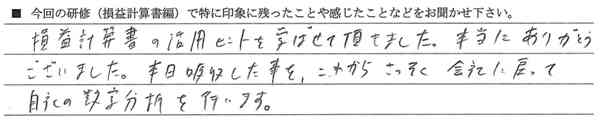 ■ 今回の研修（損益計算書編）で特に印象に残ったことや感じたことなどをお聞かせ下さい。
損益計算書の活用ヒントを学ばせて頂きました。本当にありがとう
ございました。本日吸収した事を、これから さっそく 会社に戻って
自社の数字分析を行います。